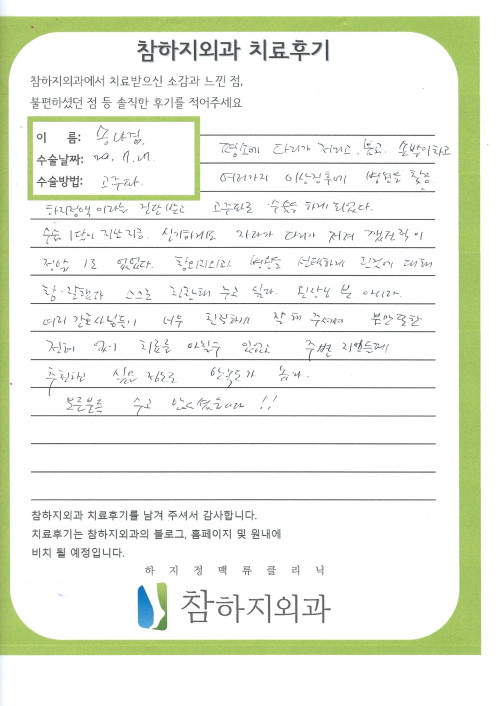 참하지외과 치료후기
참하지외과에서 치료받으신 소감과 느낀 점,
불편하셨던 점 등 솔직한 후기를 적어주세요
이 름:
수술날짜:
수술방법: 고주파.
평소에 다리가 저리고, 붓고,
여러가지 이상징후에 병원을 찾음
하지정맥이라는 진단 받고 고주파로 수술을 하게 되었다.
수술 1달이 지난 지금. 신기하게도 자다가 다리가 저려
정말 1도 없었다. 참하지외과 병원을 선택하게 된것에 대해
참 잘했다 스스로 칭찬해 주고 싶다. 원장님 뿐 아니라.
여러 간호사님들이 너무 친절하게 잘 해 주셔서
전혀 없이 치료를 주변 지인들께
추천하고 싶을 정도로 만족도가 높다.
모든분들 수고 많으셨습니다 !!
참하지외과 치료후기를 남겨 주셔서 감사합니다.
치료후기는 참하지외과의 블로그, 홈페이지 및 원내에
비치 될 예정입니다.
하지정맥류클리닉
참하지외과